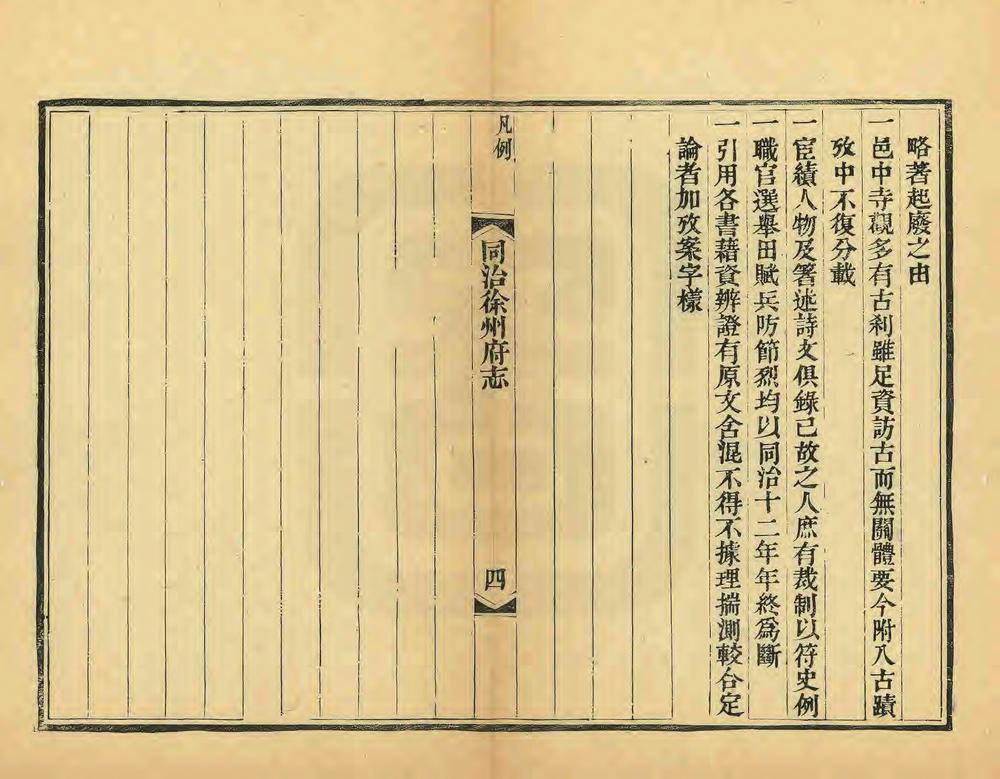 略著起廢之由
一邑中寺觀多有古刹雖足資訪古而無關體要今附入古蹟
攷中不復分載
一宦績人物及箸述詩文俱錄已故之人庶有裁制以符史例
一職官選舉田賦兵防節烈均以同治十二年年終爲斷
一引用各書藉資辨證有原文含混不得不據理揣測較合定
論者加攷案字樣
凡例
同治徐州府志
四